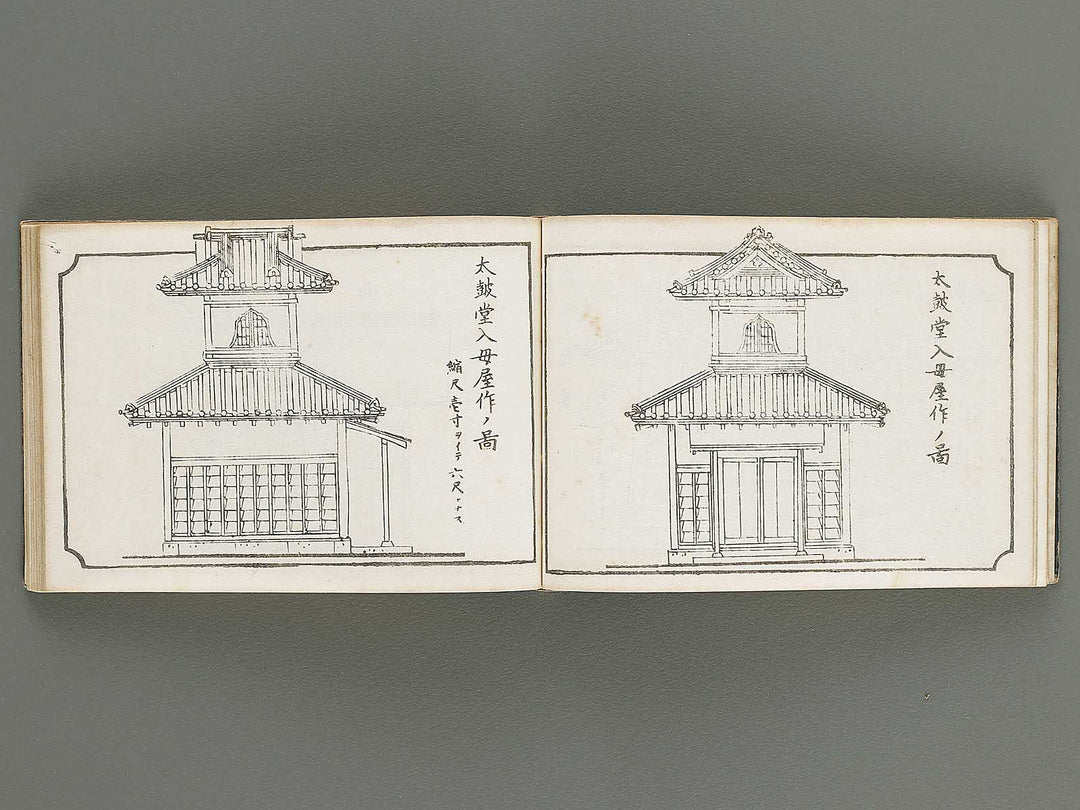 太鼓堂入母屋作ノ圖
太鼓堂入母屋作ノ圖
縮尺壱寸ヲイテ六尺トナス